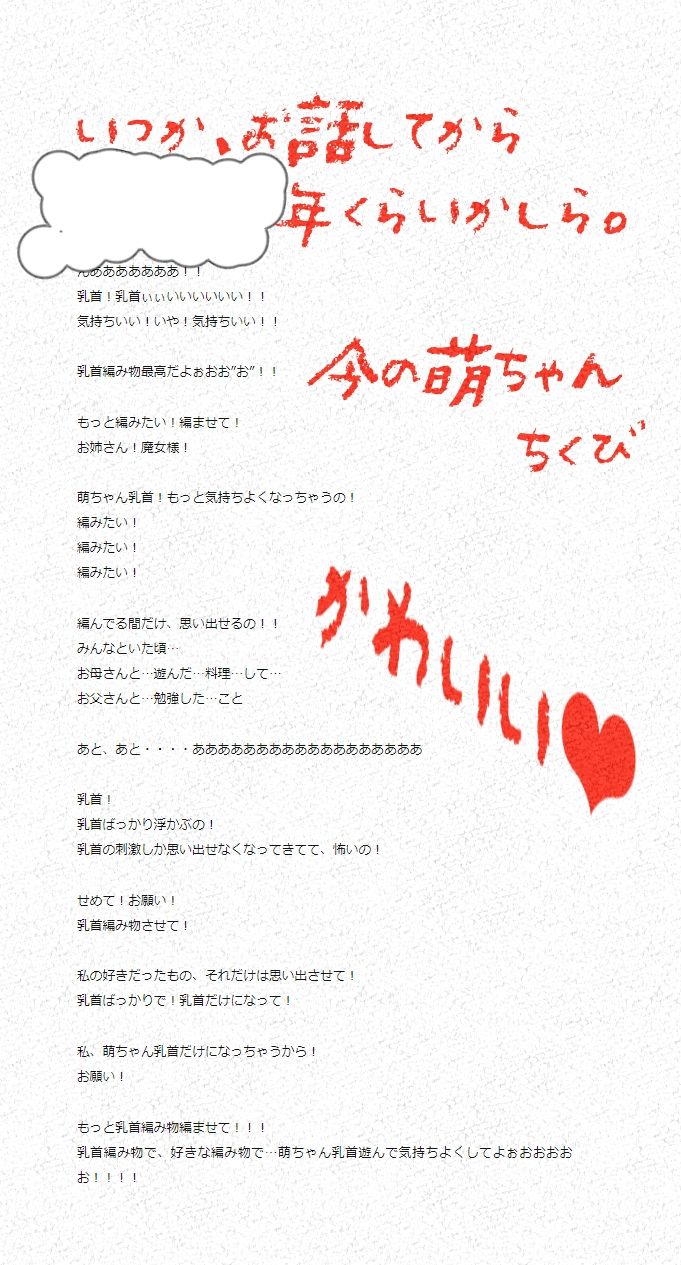 いつか、お話してから
年くらいかしら。
んあああああああ！！
乳首！乳首ぃぃいいいいいい！！
気持ちいい！いや！気持ちいい！！
乳首編み物最高だよぉおお”お”！！
今の萌ちゃん
ちくび
もっと編みたい！編ませて！
お姉さん！廃女様！
萌ちゃん乳首！もっと気持ちよくなっちゃうの！
編みたい！
編みたい！
編みたい！
かわいい♥
編んでる間だけ、思い出せるの！！
みんなといた頃…
お母さんと…遊んだ…料理…して…
お父さんと…勉強した…こと
あと、あと・・・・ああああああああああああああああああ
乳首！
乳首ばっかり浮かぶの！
乳首の刺激しか思い出せなくなってきてて、怖いの！
せめて！お願い！
乳首編み物させて！
私の好きだったもの、それだけは思い出させて！
乳首ばっかりで！乳首だけになって！
私、萌ちゃん乳首だけになっちゃうから！
お願い！
もっと乳首編み物編ませて！！！
乳首編み物で、好きな編み物で…萌ちゃん乳首遊んで気持ちよくしてよぉおおおお
お！！！！